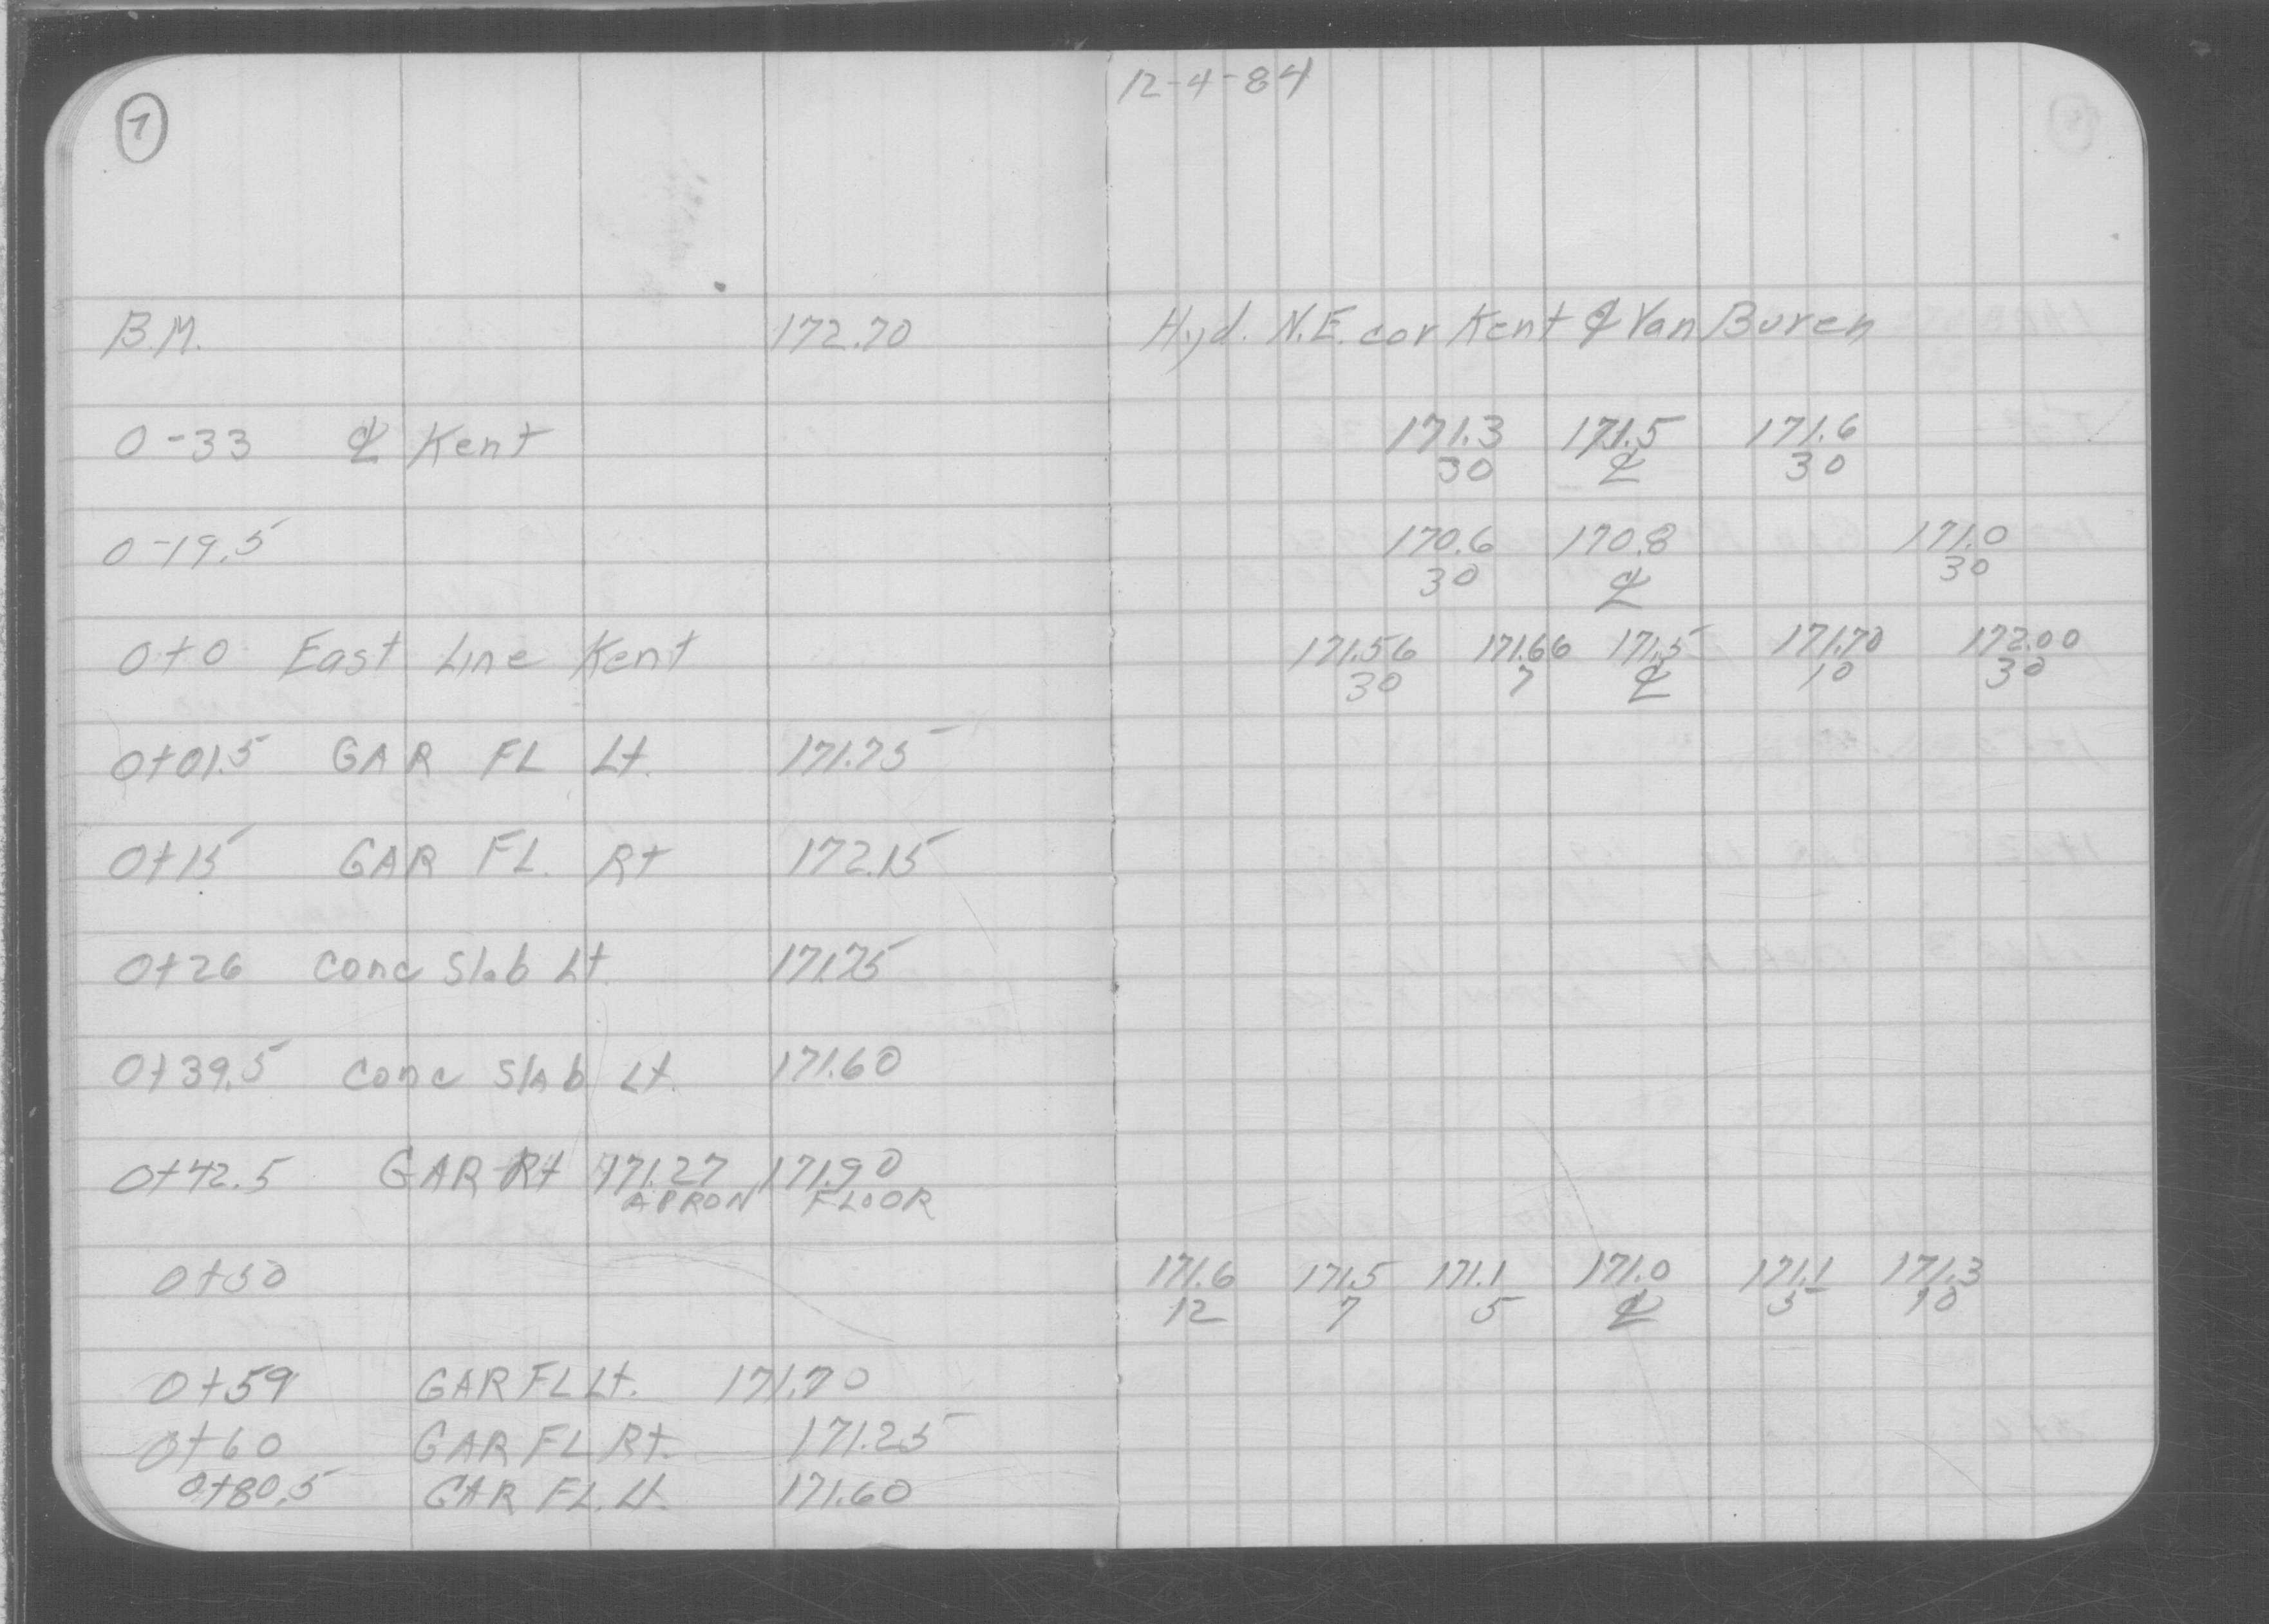 7
B.M. 172.70
0-33 ℄ Kent
0-19.5
0+0 East Line Kent
0+01.5 GAR FL Lt. 171.75
0+15 GAR FL. Rt 172.15
0+26 conc slab Lt. 171.75
0+39.5 conc slab Lt. 171.60
0+42.5 GAR Rt 171.27 171.90
APRON FLOOR
0+50
0+59 GAR FL Lt. 171.70
0+60 GAR FL Rt. 171.25
0+80.5 GAR FL. Lt. 171.60
12-4-84
Hyd. N.E. cor Kent & Van Buren
171.3 171.5 171.6
30 ℄ 30
170.6 170.8 171.0
30 ℄ 30
171.56 171.66 171.5 171.70 172.00
30 7 ℄ 10 30
171.6 171.5 171.1 171.0 171.1 171.3
12 7 5 ℄ 5 10